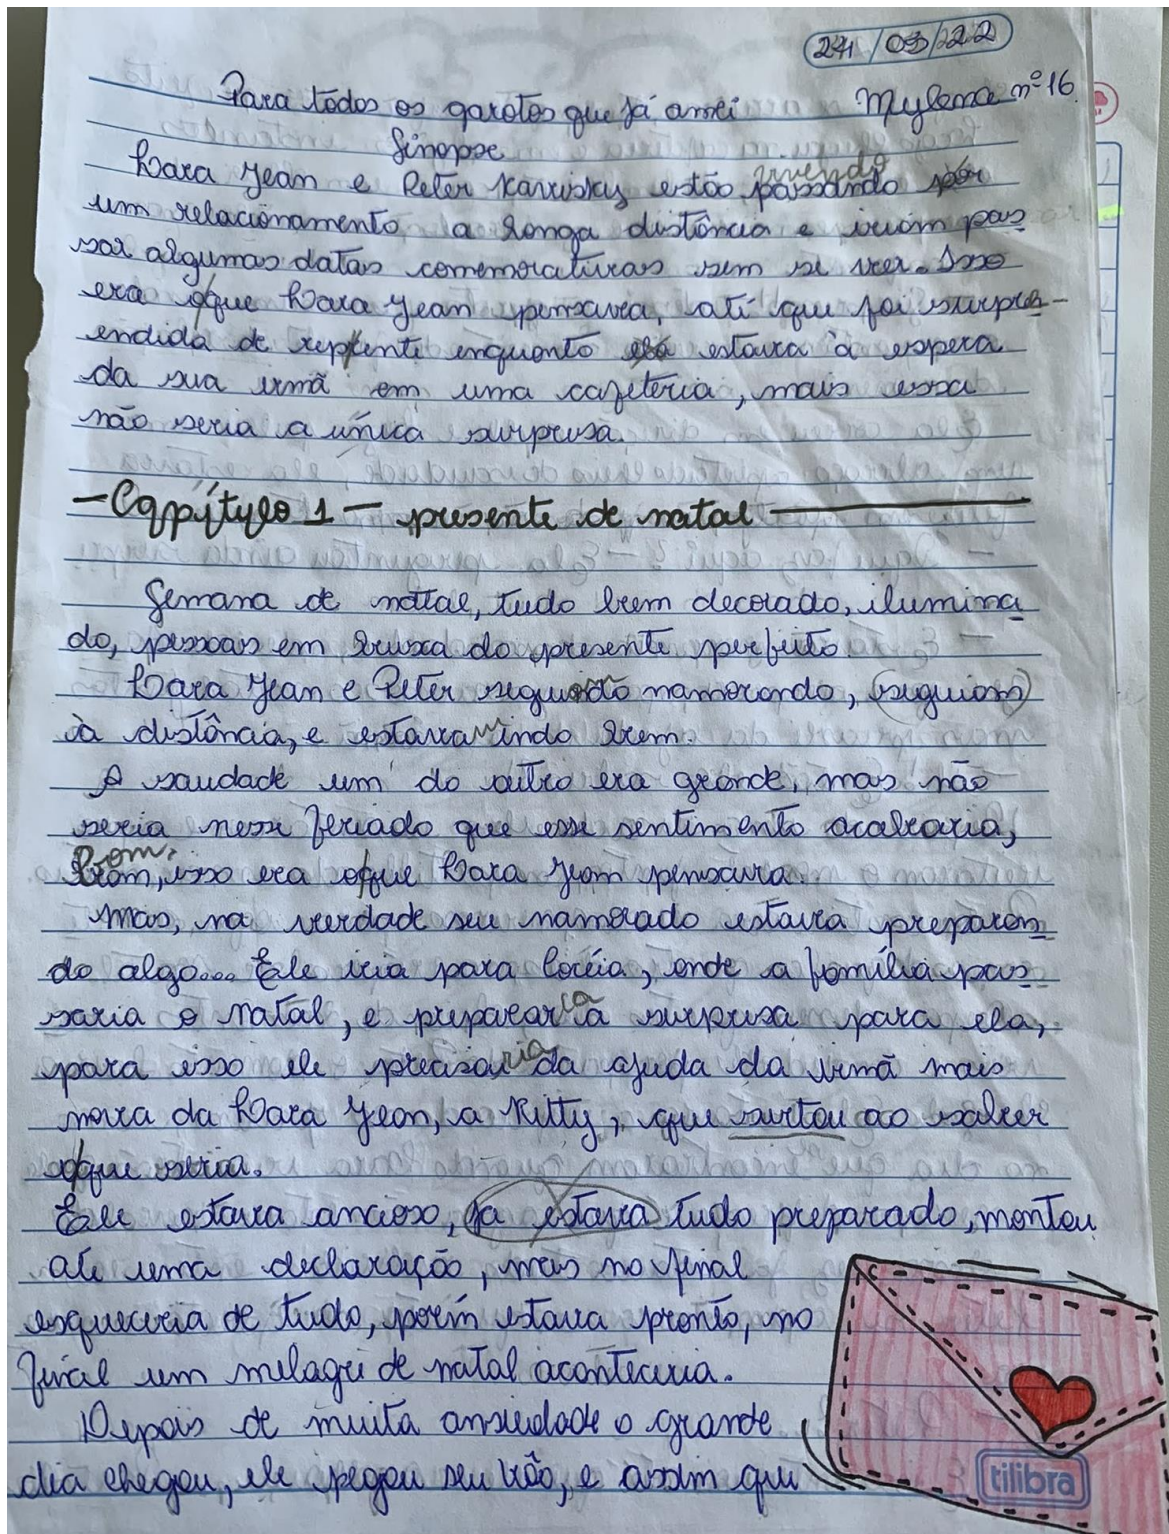 24/03/22
Para todos os garotos que já amei Mylena nº 16
Sinopse
vivendo
Lara Jean e Peter Kavinsky estão passando por
um relacionamento a longa distância e iriam pas
sar algumas datas comemorativas sem se ver. Isso
era oque Lara Jean pensava, até que foi surpre-
endida de repente enquanto ela estava à espera
da sua irmã em uma cafeteria, mais essa
não seria a única surpresa.
—Capítulo 1 — presente de natal —
Semana de natal, tudo bem decorado, ilumina
do, pessoas em busca do presente perfeito.
Lara Jean e Peter seguem namorando, (seguiam)
à distância, e estavam indo bem.
A saudade um do outro era grande, mas não
seria nesse feriado que esse sentimento acabaria,
Bom,
Bom, isso era oque Lara Jean pensava.
Mas, na verdade seu namorado estava preparan
do algo... Ele iria para Coréia, onde a família pas
saria o Natal, e prepararia a surpresa para ela,
para isso ele precisaria da ajuda da irmã mais
nova da Lara Jean, a Kitty, que surtou ao saber
oque seria.
Ele estava ancioso, ja estava tudo preparado, montou
até uma declaração, mas no final
esqueceria de tudo, porém estava pronto, no
final um melagre de natal aconteceria.
Depois de muita ansiedade o grande
dia chegou, ele pegou seu vôo, e assim que
tilibra